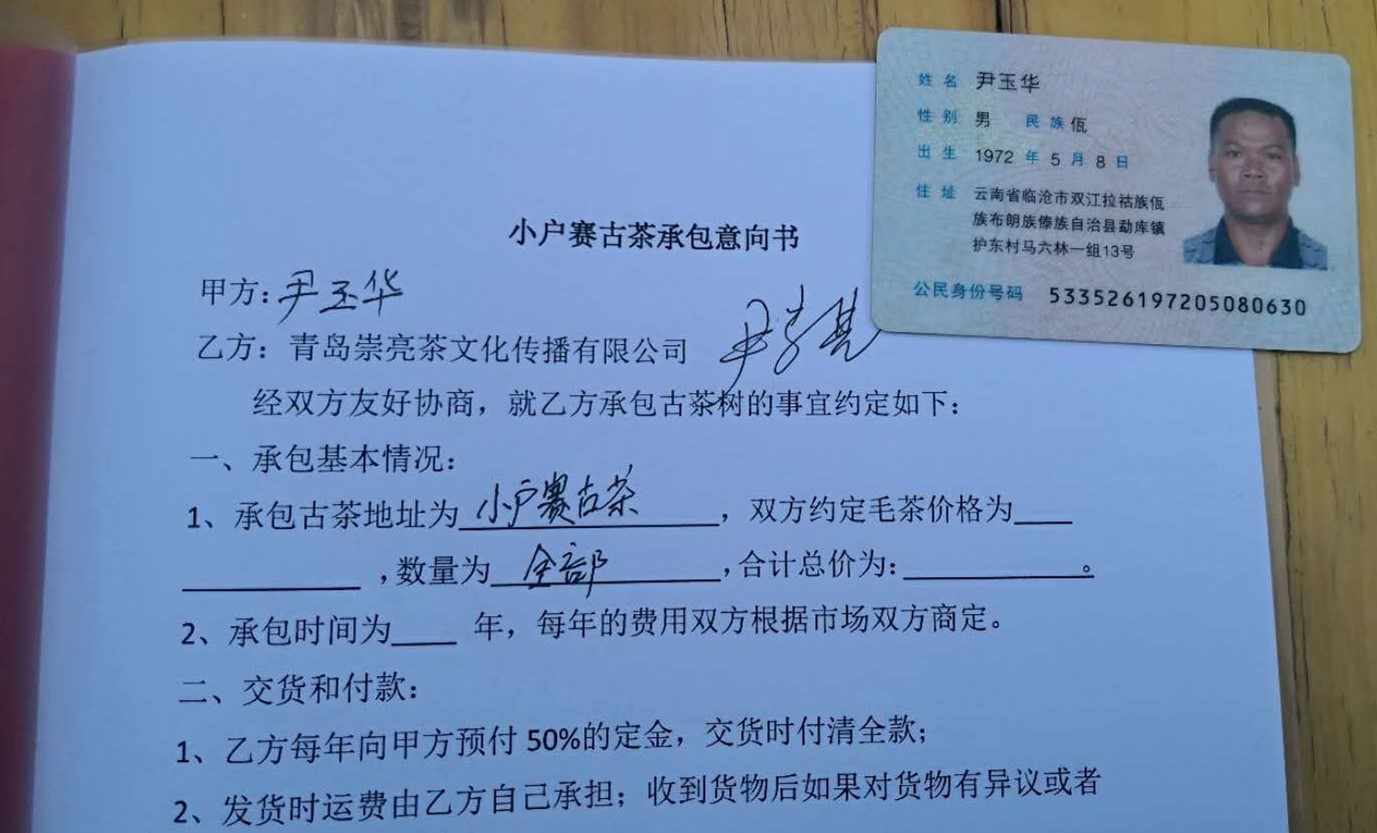 姓名 尹玉华
性别 男 民族 佤
出生 1972 年 5 月 8 日
住址 云南省临沧市双江拉祜族佤
族布朗族傣族自治县勐库镇
护东村马六林一组13号
公民身份号码 533526197205080630
小户赛古茶承包意向书
甲方：尹玉华
乙方：青岛崇亮茶文化传播有限公司
经双方友好协商，就乙方承包古茶树的事宜约定如下：
一、承包基本情况：
1、承包古茶地址为 小户赛古茶 ，双方约定毛茶价格为____
____，数量为 全部 ，合计总价为：____。
2、承包时间为____ 年，每年的费用双方根据市场双方商定。
二、交货和付款：
1、乙方每年向甲方预付 50%的定金，交货时付清全款；
2、发货时运费由乙方自己承担；收到货物后如果对货物有异议或者